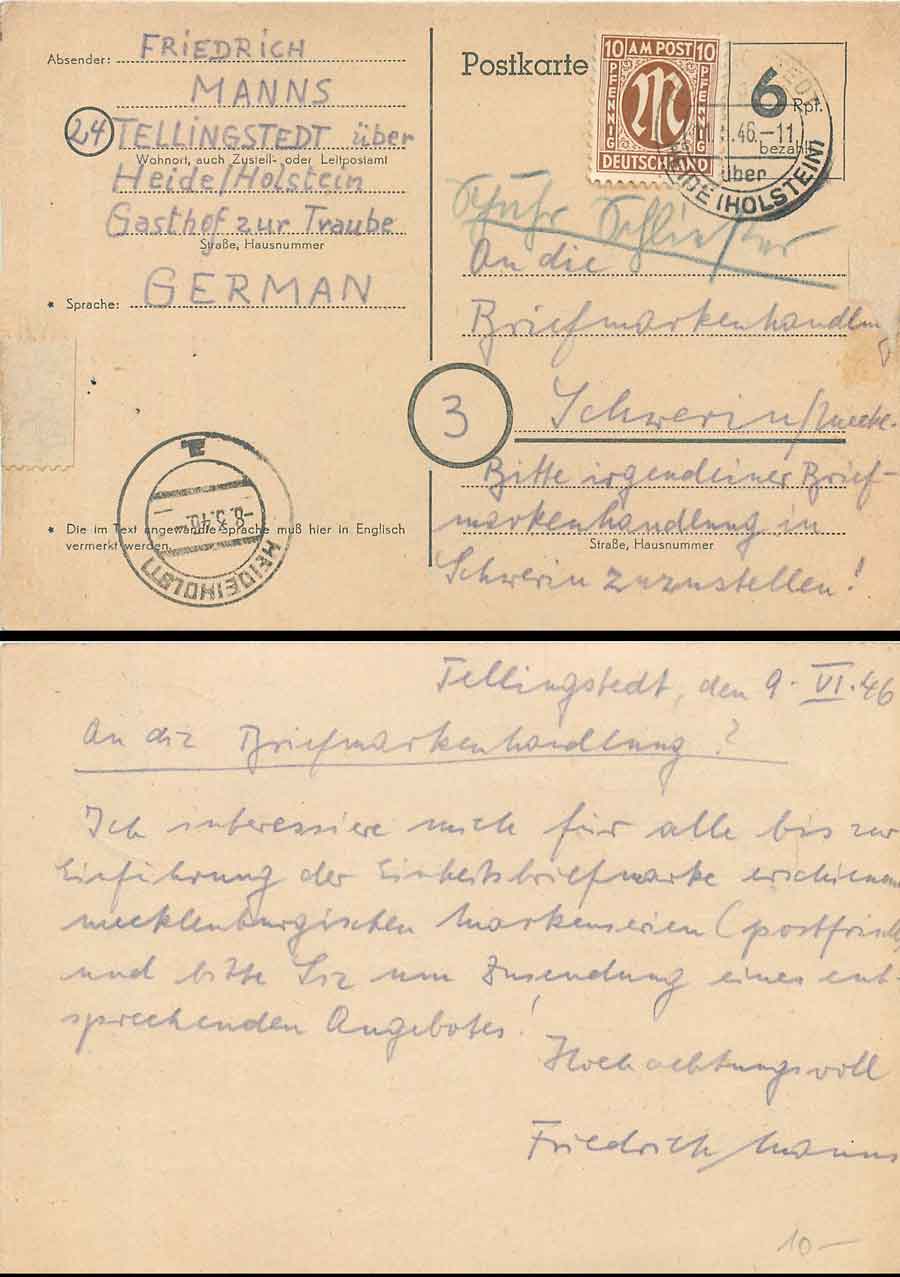 Absender: FRIEDRICH
MANNS
24 TELLINGSTEDT über
Wohnort, auch Zustell- oder Leitpostamt
Heide/Holstein
Gasthof zur Traube
Straße, Hausnummer
* Sprache: GERMAN
* Die im Text angewandte Sprache muß hier in Englisch
vermerkt werden.
HEIDE(HOLST)
Postkarte
10 AM POST 10
PFENNIG M PFENNIG
DEUTSCHLAND
6 Rpf.
bezahlt
46.-11
über
HEIDE (HOLSTEIN)
An die
Briefmarkenhandlung
3 Schwerin/Meckl.
Bitte irgendeiner Brief-
markenhandlung in
Straße, Hausnummer
Schwerin zuzustellen!
Tellingstedt, den 9. VI. 46
An die Briefmarkenhandlung ?
Ich interessiere mich für alle bis zur
Einführung der Einheitsbriefmarke
mecklenburgischen Markenserien (postfrisch
und bitte Sie um Zusendung eines ent-
sprechenden Angebotes!
Hochachtungsvoll
Friedrich Manns
10 —